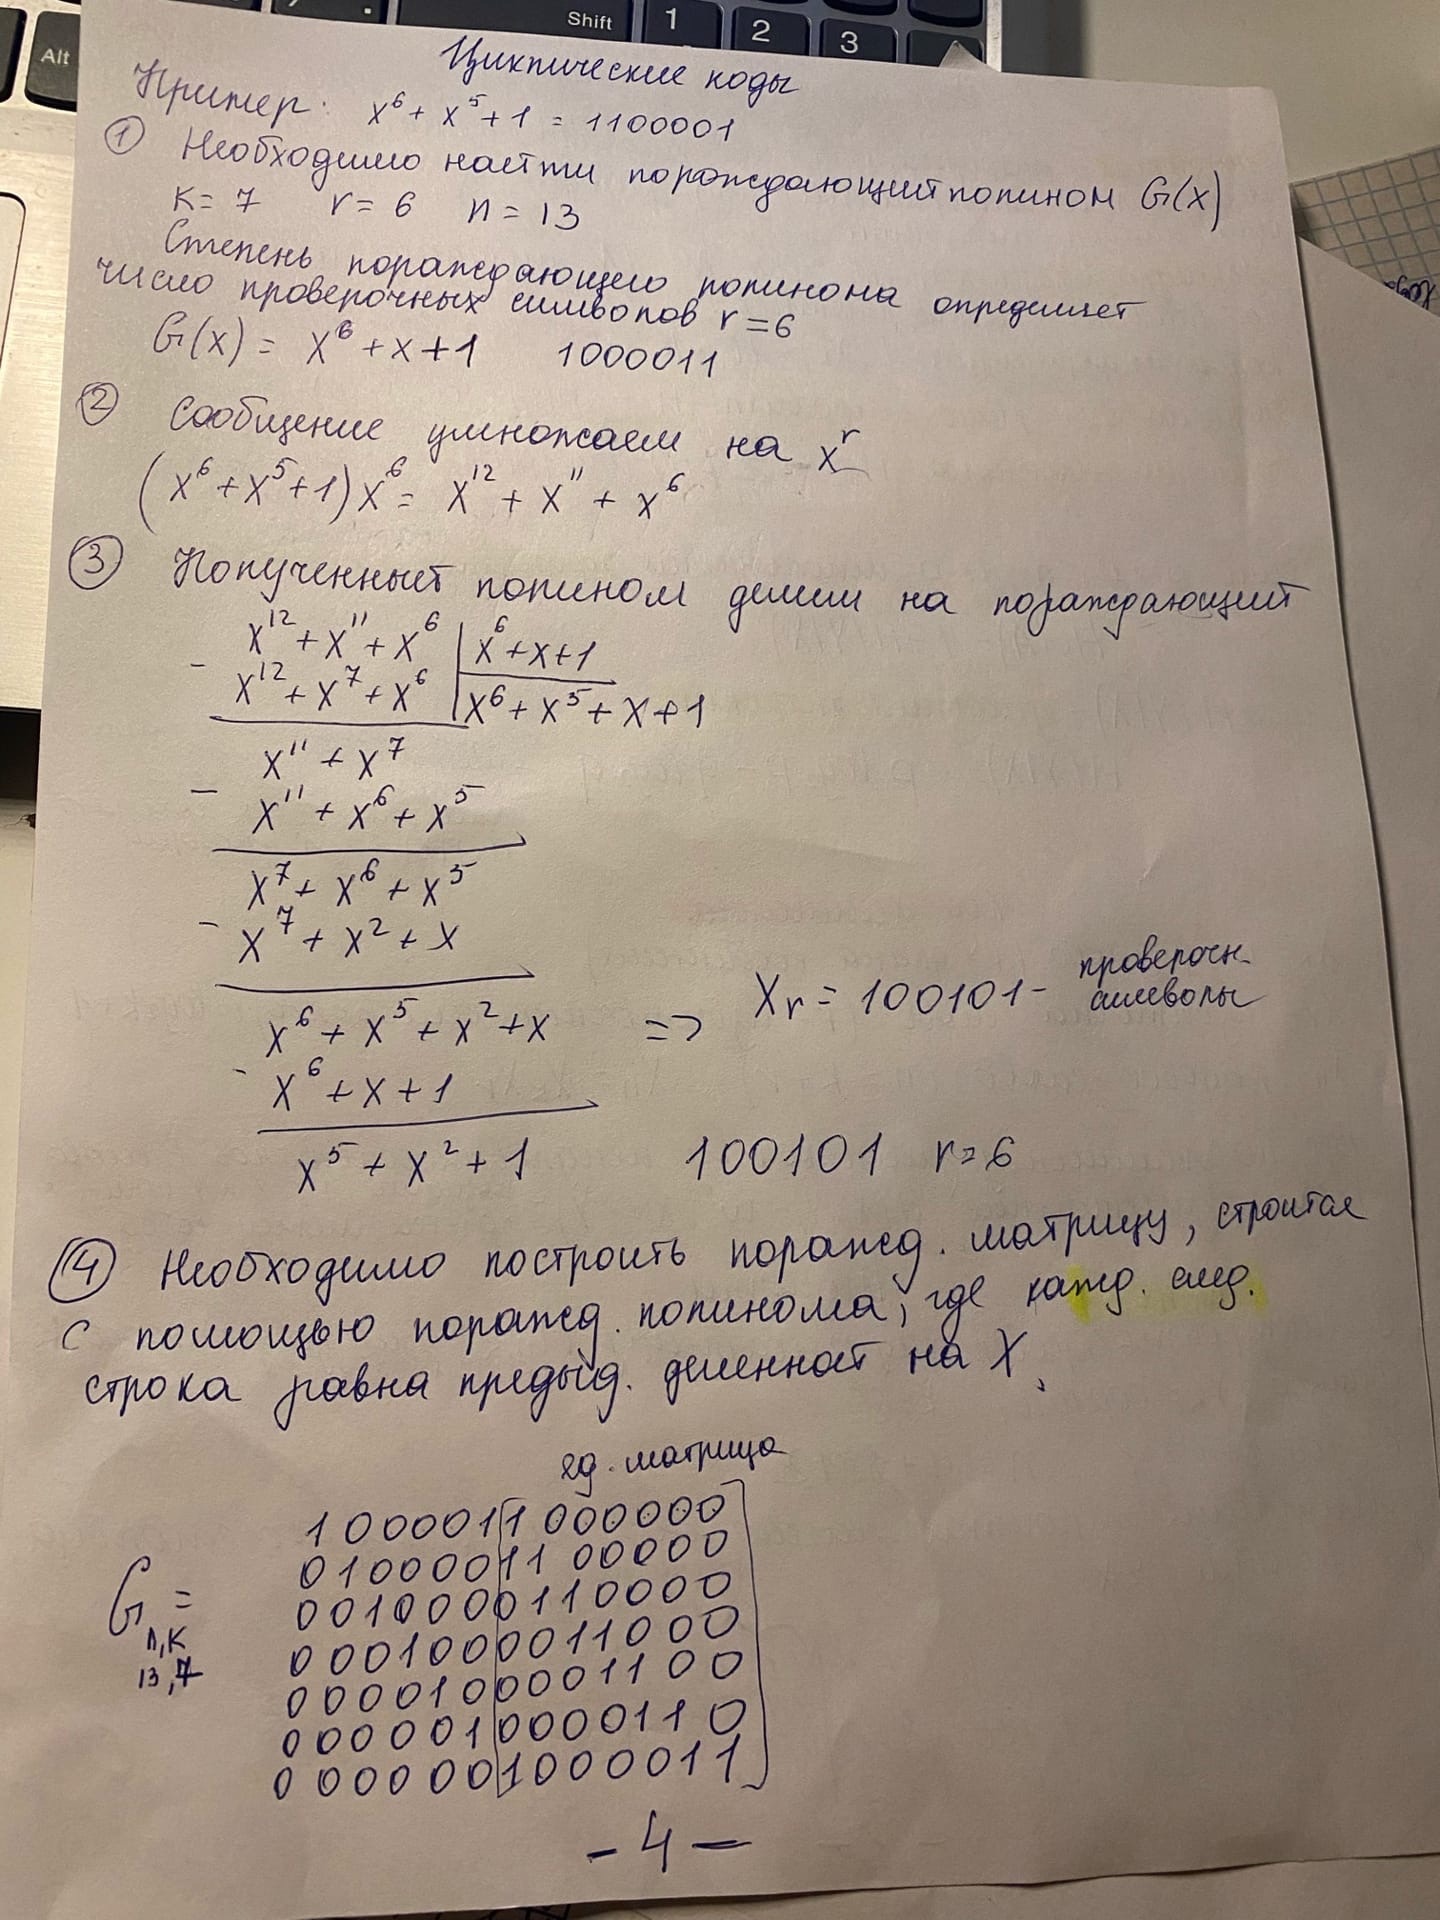 Shift
1
2
3
Alt
Циклические коды
Пример: x⁶ + x⁵ + 1 = 1100001
① Необходимо найти пораждающий полином G(x)
k = 7 r = 6 n = 13
Степень пораждающего полинома определяет
число проверочных символов r = 6
G(x) = x⁶ + x + 1 1000011
② Сообщение умножаем на xʳ
(x⁶ + x⁵ + 1) x⁶ = x¹² + x¹¹ + x⁶
③ Полученный полином делим на пораждающий
x¹² + x¹¹ + x⁶ | x⁶ + x + 1
- x¹² + x⁷ + x⁶ | x⁶ + x⁵ + x + 1
x¹¹ + x⁷
- x¹¹ + x⁶ + x⁵
x⁷ + x⁶ + x⁵
- x⁷ + x² + x
x⁶ + x⁵ + x² + x => Xr = 100101 - проверочн. символы
- x⁶ + x + 1
x⁵ + x² + 1 100101 r = 6
④ Необходимо построить поражд. матрицу, строится
с помощью поражд. полинома, где кажд. след.
строка равна предыд. деленной на X.
ед. матрица
1000011000000
0100001100000
0010000110000
G n,k 13,7 =
0001000011000
0000100001100
0000010000110
0000001000011
- 4 -